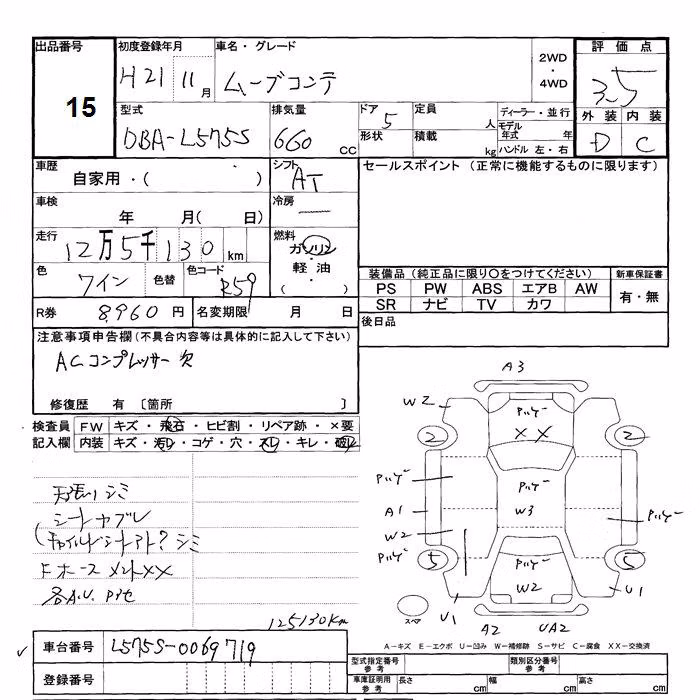 出品番号 初度登録年月 車名・グレード 2WD・4WD 評価点
15 H21 11月 ムーブコンテ 3.5
型式 排気量 ドア 定員 人 ディーラー・並行 外装 内装
DBA-L575S 660 CC 5 形状 積載 kg モデル年式 年 ハンドル 左・右 D C
車歴 シフト セールスポイント (正常に機能するものに限ります)
自家用・( ) AT
車検 年 月( 日) 冷房 ー
走行 12万5千130km 燃料 ガソリン・軽油・( )
色 ワイン 色替 色コード R59
装備品(純正品に限り○をつけてください) 新車保証書
PS PW ABS エアB AW 有・無
SR ナビ TV カワ
R券 8,960円 名変期限 月 日
後日品
注意事項申告欄(不具合内容等は具体的に記入して下さい)
ACコンプレッサー欠
修復歴 有 〔箇所 〕
検査員記入欄 FW キズ・飛石・ヒビ割・リペア跡・×要
内装 キズ・汚レ・コゲ・穴・スレ・キレ・破レ
天張リシミ
シートヤブレ
シミ
××
125130Km
A3
W2 パルゲー
2 ×× 2
パルゲー パルゲー
A1 W3 パルゲー
W2
パルゲー
5 パルゲー 5
W2
スペア U1 U1
A2 UA2
A-キズ E-エクボ U-凹み W-補修跡 S-サビ C-腐食 XX-交換済
車台番号 L575S-0069719
登録番号
型式指定番号 参考 類別区分番号 参考
車庫証明用 参考 長さ cm 幅 cm 高さ cm